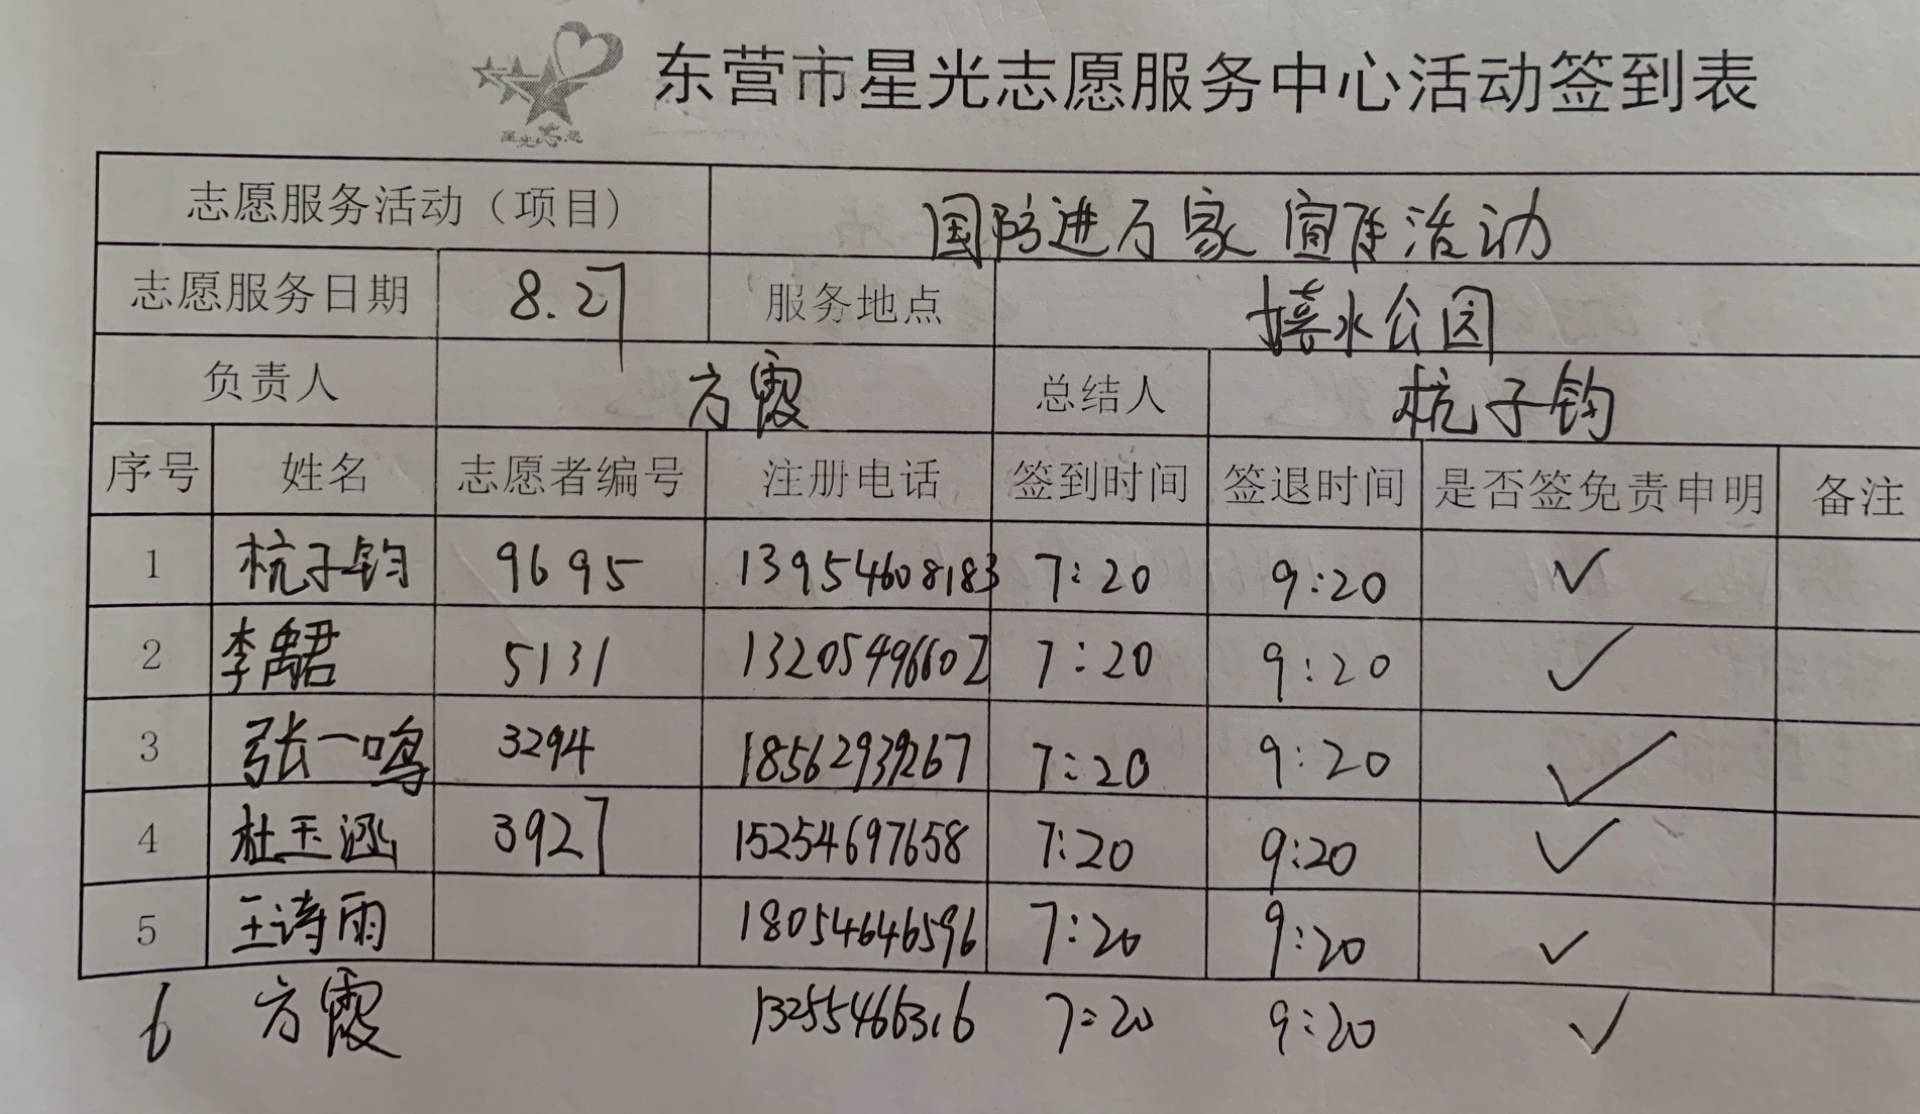 东营市星光志愿服务中心活动签到表
星光志愿
志愿服务活动（项目） 国防进万家 宣传活动
志愿服务日期 8.27 服务地点 嬉水公园
负责人 方霞 总结人 杭子钧
序号 姓名 志愿者编号 注册电话 签到时间 签退时间 是否签免责申明 备注
1 杭子钧 9695 13954608183 7:20 9:20 ✓
2 李禹君 5131 13205496602 7:20 9:20 ✓
3 张一鸣 3294 18562939267 7:20 9:20 ✓
4 杜玉涵 3927 15254697658 7:20 9:20 ✓
5 王诗雨 18054646596 7:20 9:20 ✓
6 方霞 13255466316 7:20 9:20 ✓